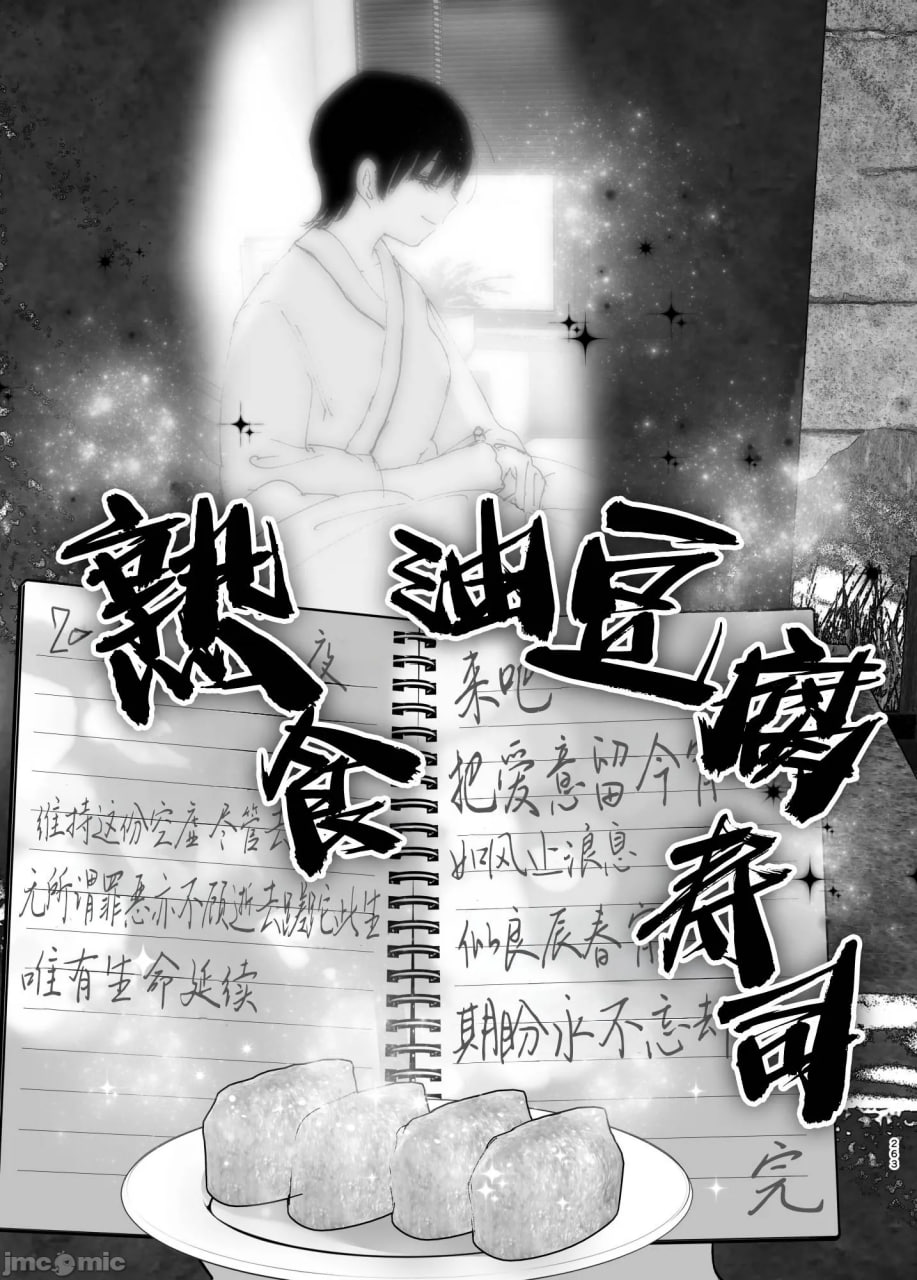 熟食
油豆腐寿司
20
夜
维持这份空虚 尽管去
无所谓罪恶亦不顾逝去蹉跎此生
唯有生命延续
来吧
把爱意留今宵
如风止浪息
似良辰春宵
期盼永不忘却
完
263
jmcomic